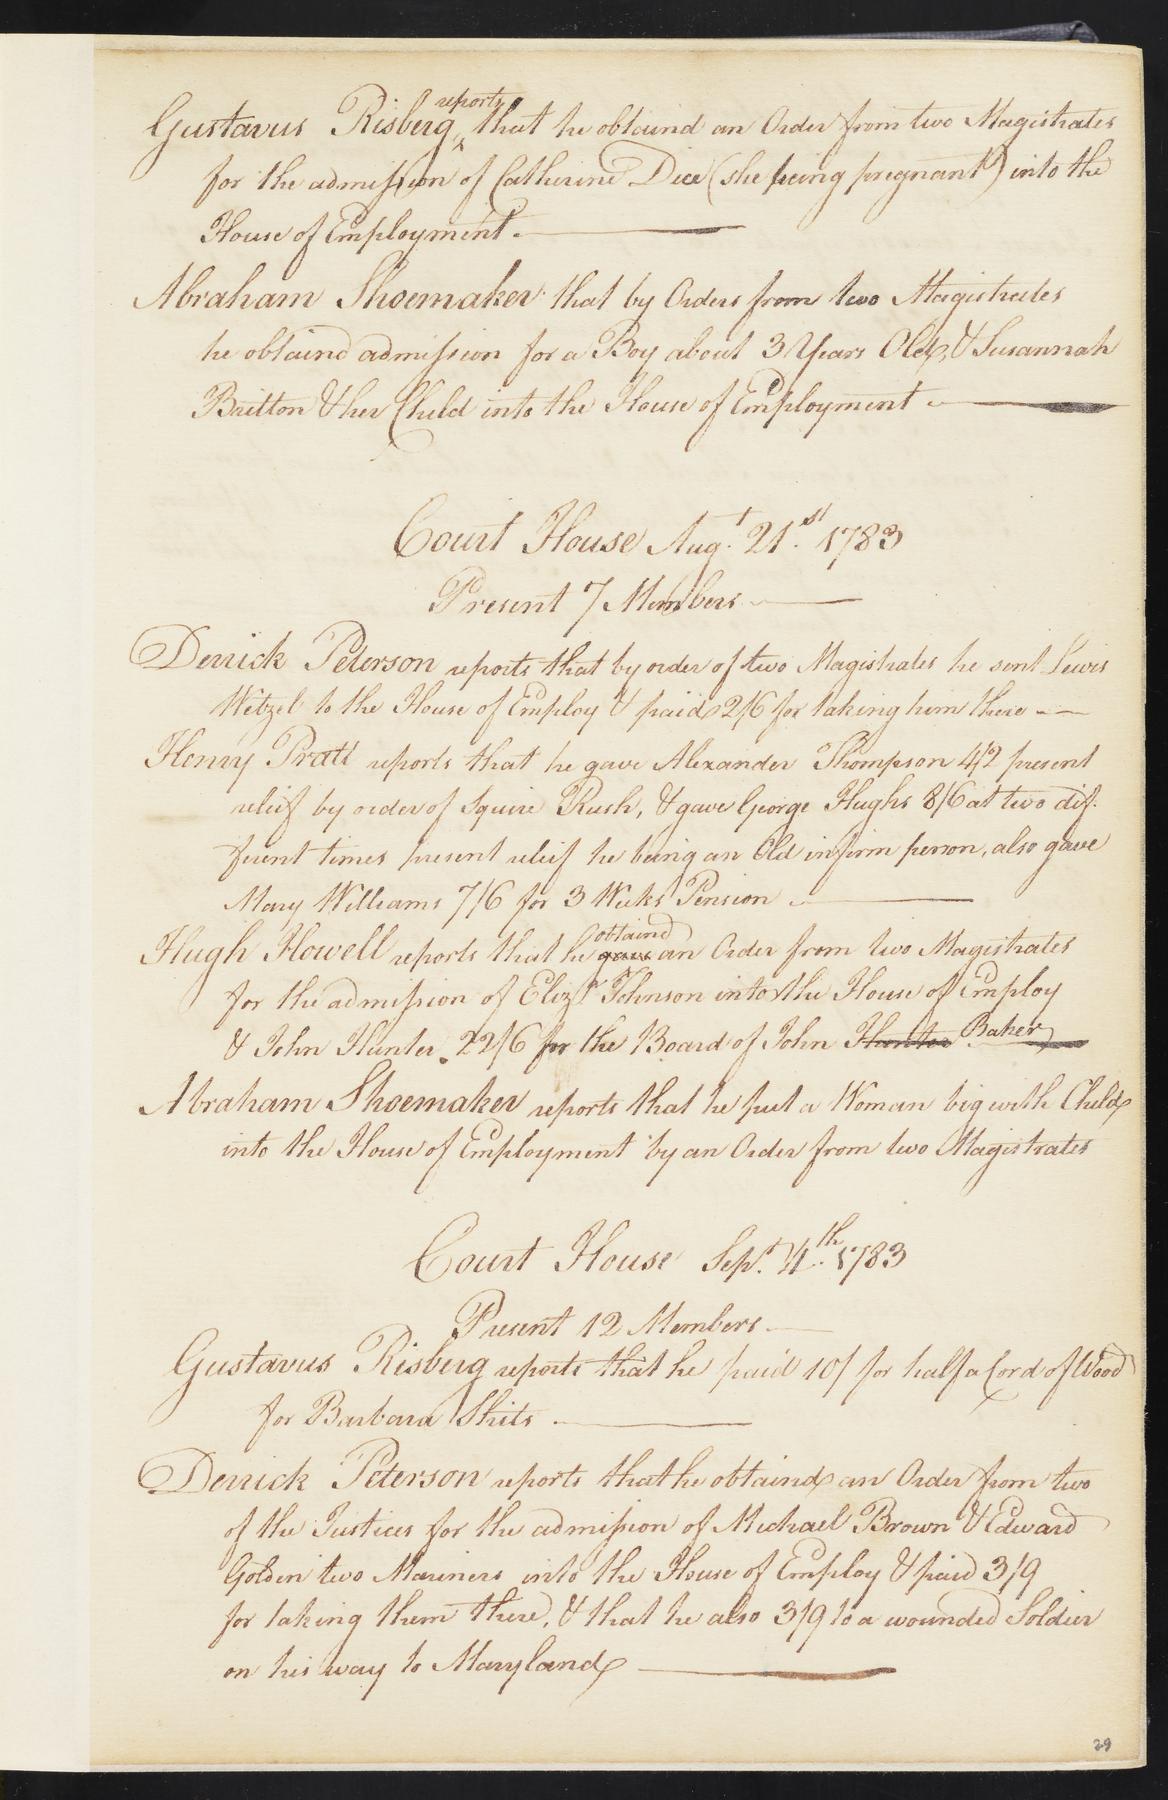 Gustavus Risberg reports that he obtaind an Order from two Magistrates
for the admission of Catherine Dice (she being pregnant) into the
House of Employment.
Abraham Shoemaker that by Orders from two Magistrates
he obtaind admission for a Boy about 3 Years Old, & Susannah
Britton & her Child into the House of Employment
Court House Augt. 21st. 1783
Present 7 Members
Derrick Peterson reports that by order of two Magistrates he sent Lewis
Wetzel to the House of Employ & paid 2/6 for taking him there
Henry Pratt reports that he gave Alexander Thompson 4/2 present
relief by order of Squire Rush, & gave George Hughs 8/6 at two dif-
ferent times present relief he being an Old infirm person, also gave
Mary Williams 7/6 for 3 Weeks Pension
Hugh Howell reports that he gave obtaind an Order from two Magistrates
for the admission of Elizh. Johnson into the House of Employ
& John Hunter 22/6 for the Board of John Hunter Baker
Abraham Shoemaker reports that he put a Woman big with Child
into the House of Employment by an Order from two Magistrates
Court House Sept. 4th. 1783
Present 12 Members
Gustavus Risberg reports that he paid 10/ for half a Cord of Wood
for Barbara Shits
Derrick Peterson reports that he obtaind an Order from two
of the Justices for the admission of Michael Brown & Edward
Golden two Mariners into the House of Employ & paid 3/9
for taking them there, & that he also 3/9 to a wounded Soldier
on his way to Maryland
29